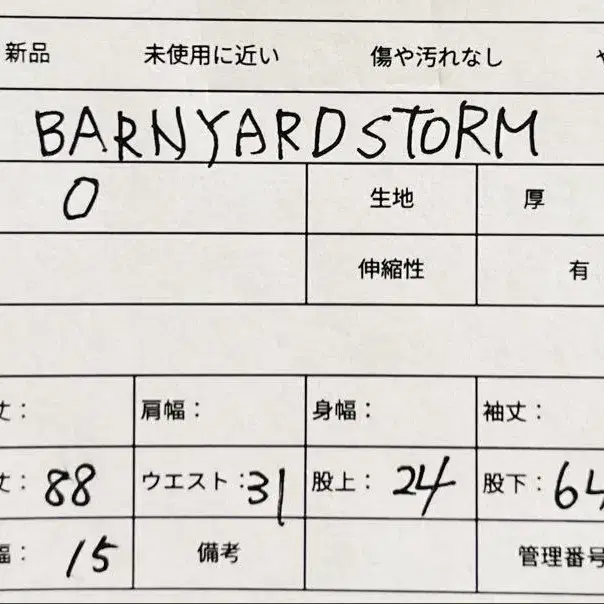 新品 未使用に近い 傷や汚れなし
BARNYARDSTORM
0 生地 厚
伸縮性 有
丈： 肩幅： 身幅： 袖丈：
丈：88 ウエスト：31 股上：24 股下：64
幅：15 備考 管理番号